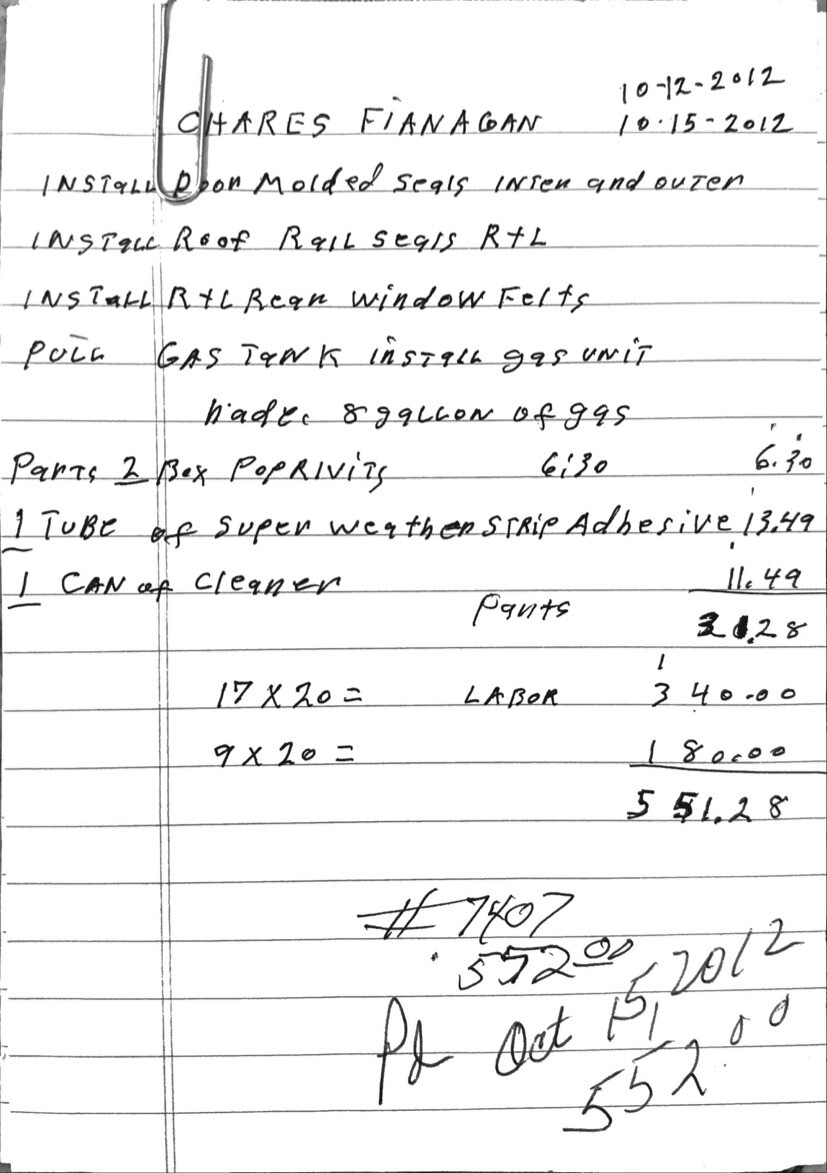 10-12-2012
CHARES FIANAGAN 10-15-2012
INSTALL Door Molded Seals INTER and OUTER
INSTALL Roof RAIL Seals R+L
INSTALL R+L Rear WINDOW Felts
PULL GAS TANK INSTALL gas UNIT
hade. 8 gallon of gas
Parts 2 Box POPRIVITS 6:30 6.30
1 TUBE of Super Weather STRIP Adhesive 13.49
1 CAN of Cleaner 11.49
Parts 31.28
1
17 X 20 = LABOR 340.00
9 X 20 = 180.00
551.28
# 7407
552 00
Pd Oct 15, 2012
552 00